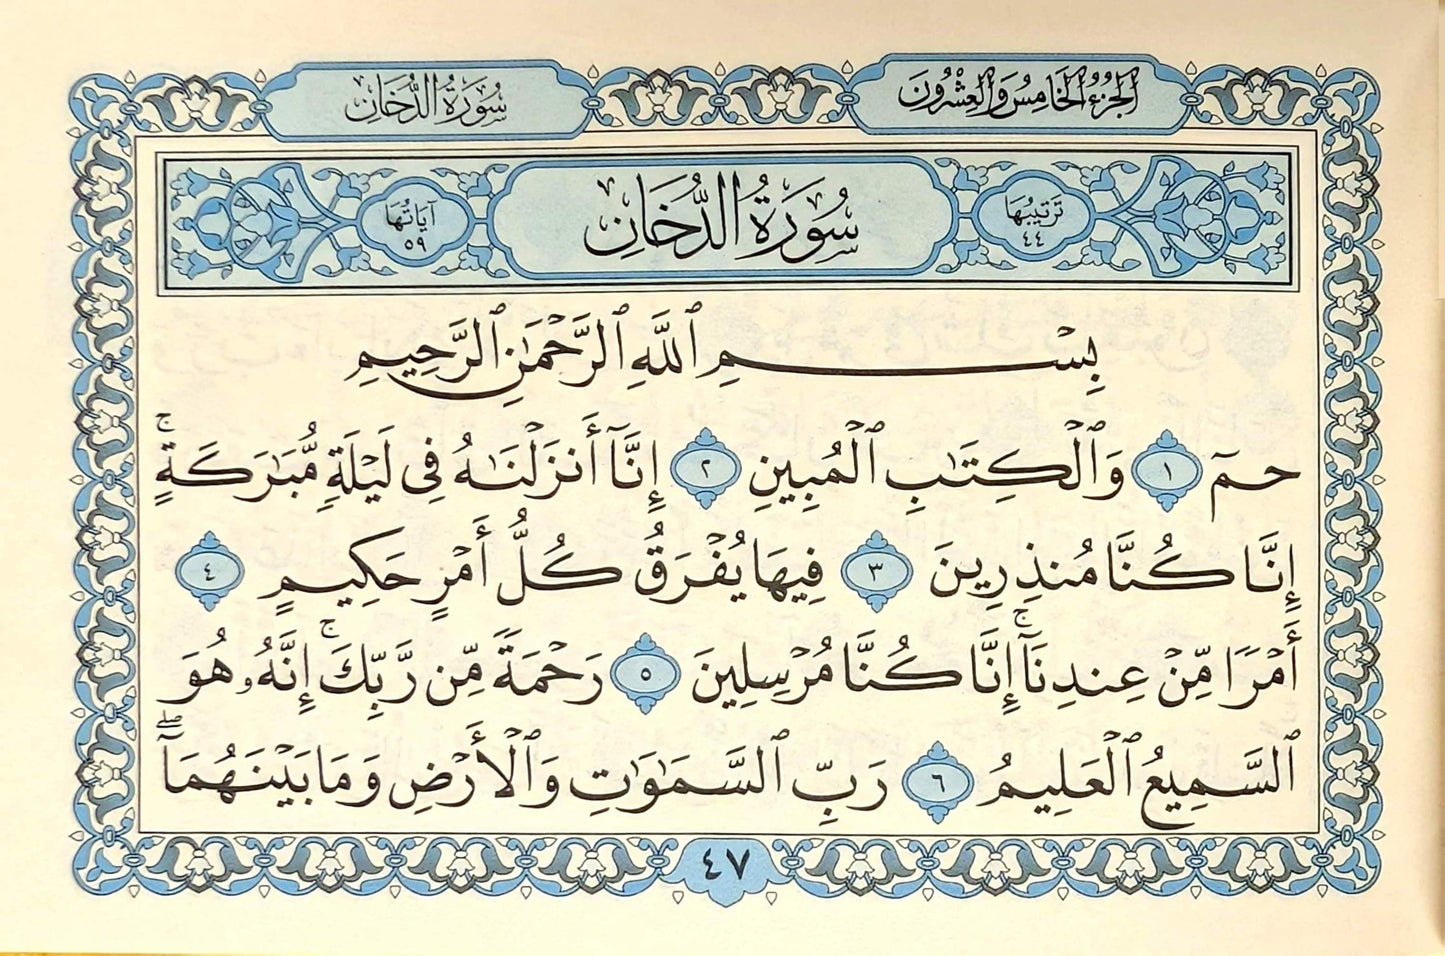 الجزء الخامس والعشرون
سورة الدخان
ترتيبها ٤٤
سُورَةُ الدُّخَانِ
آياتها ٥٩
بِسْمِ ٱللَّهِ ٱلرَّحْمَٰنِ ٱلرَّحِيمِ
حمٓ ١ وَٱلْكِتَٰبِ ٱلْمُبِينِ ٢ إِنَّآ أَنزَلْنَٰهُ فِى لَيْلَةٍ مُّبَٰرَكَةٍ ۚ
إِنَّا كُنَّا مُنذِرِينَ ٣ فِيهَا يُفْرَقُ كُلُّ أَمْرٍ حَكِيمٍ ٤
أَمْرًا مِّنْ عِندِنَآ ۚ إِنَّا كُنَّا مُرْسِلِينَ ٥ رَحْمَةً مِّن رَّبِّكَ ۚ إِنَّهُۥ هُوَ
ٱلسَّمِيعُ ٱلْعَلِيمُ ٦ رَبِّ ٱلسَّمَٰوَٰتِ وَٱلْأَرْضِ وَمَا بَيْنَهُمَآ ۖ
٤٧